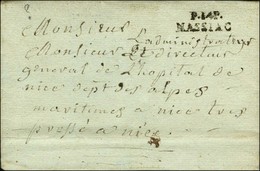 P.14P.
MASSIAC
Monsieur
L'administrateur
Monsieur Et directeur
general de L'hopital de
nice dept des alpes
maritimes a nice tres
pressé a nice